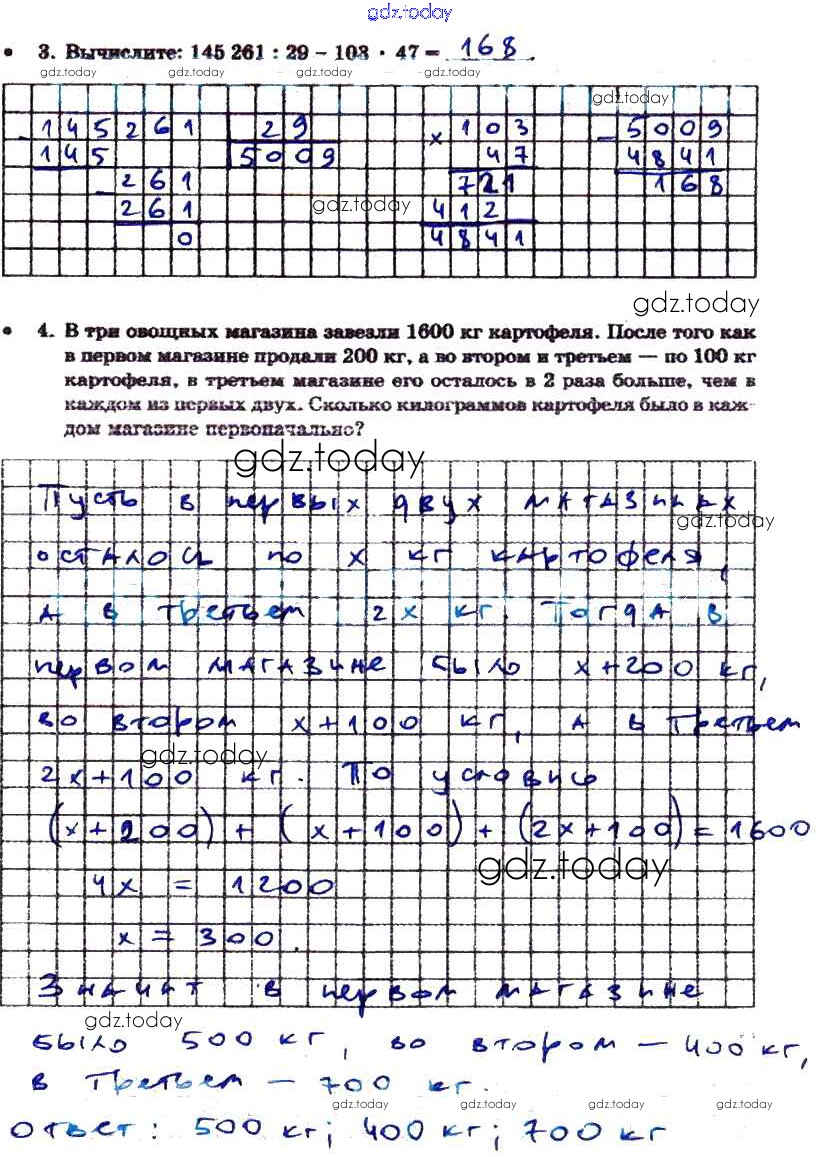 gdz.today
3. Вычислите: 145 261 : 29 – 103 · 47 = 168.
gdz.today gdz.today gdz.today gdz.today
gdz.today
145261 29 × 103 – 5009
145 5009 47 4841
– 261 721 168
261 gdz.today 412
0 4841
gdz.today
4. В три овощных магазина завезли 1600 кг картофеля. После того как
в первом магазине продали 200 кг, а во втором и третьем — по 100 кг
картофеля, в третьем магазине его осталось в 2 раза больше, чем в
каждом из первых двух. Сколько килограммов картофеля было в каж-
дом магазине первоначально?
gdz.today
Пусть в первых двух магазинах
gdz.today
осталось по x кг картофеля,
а в третьем 2x кг. Тогда в
первом магазине было x+200 кг,
во втором x+100 кг, а в третьем
gdz.today
2x+100 кг. По условию
(x+200) + (x+100) + (2x+100) = 1600
gdz.today
4x = 1200
x = 300.
Значит в первом магазине
gdz.today
было 500 кг, во втором – 400 кг,
в третьем – 700 кг.
gdz.today gdz.today gdz.today gdz.today
ответ: 500 кг; 400 кг; 700 кг